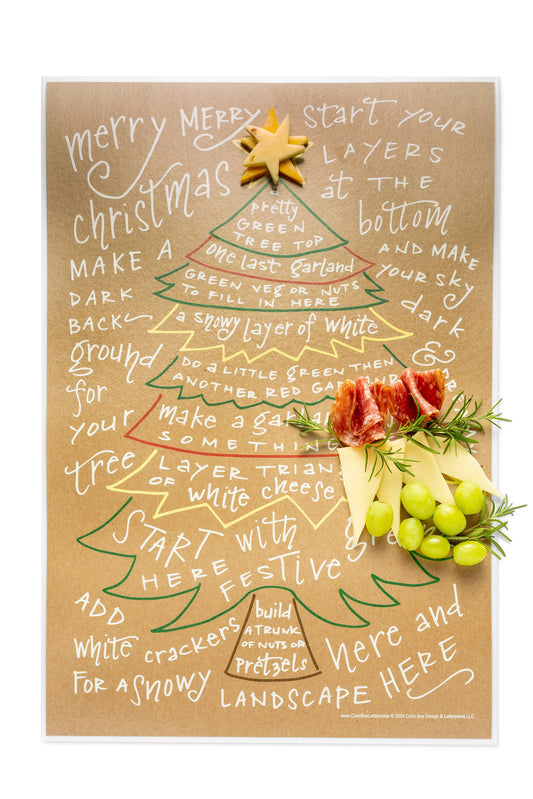 merry MERRY
christmas
start YOUR
LAYERS
at THE
bottom
AND MAKE
YOUR SKY
dark
&
MAKE A
DARK
BACK
ground
for
your
tree
pretty
GREEN
TREE TOP
one last garland
GREEN VEG OR NUTS
TO FILL IN HERE
a snowy layer of white
DO A LITTLE GREEN THEN
ANOTHER RED
make a
SOMETHING
LAYER
OF white cheese
START with
HERE FESTIVE
build
A TRUNK
OF NUTS OR
pretzels
ADD
white crackers
FOR A snowy
LANDSCAPE HERE
here and
www.ColorBoxLetterpress © 2024 Color Box Design & Letterpress LLC